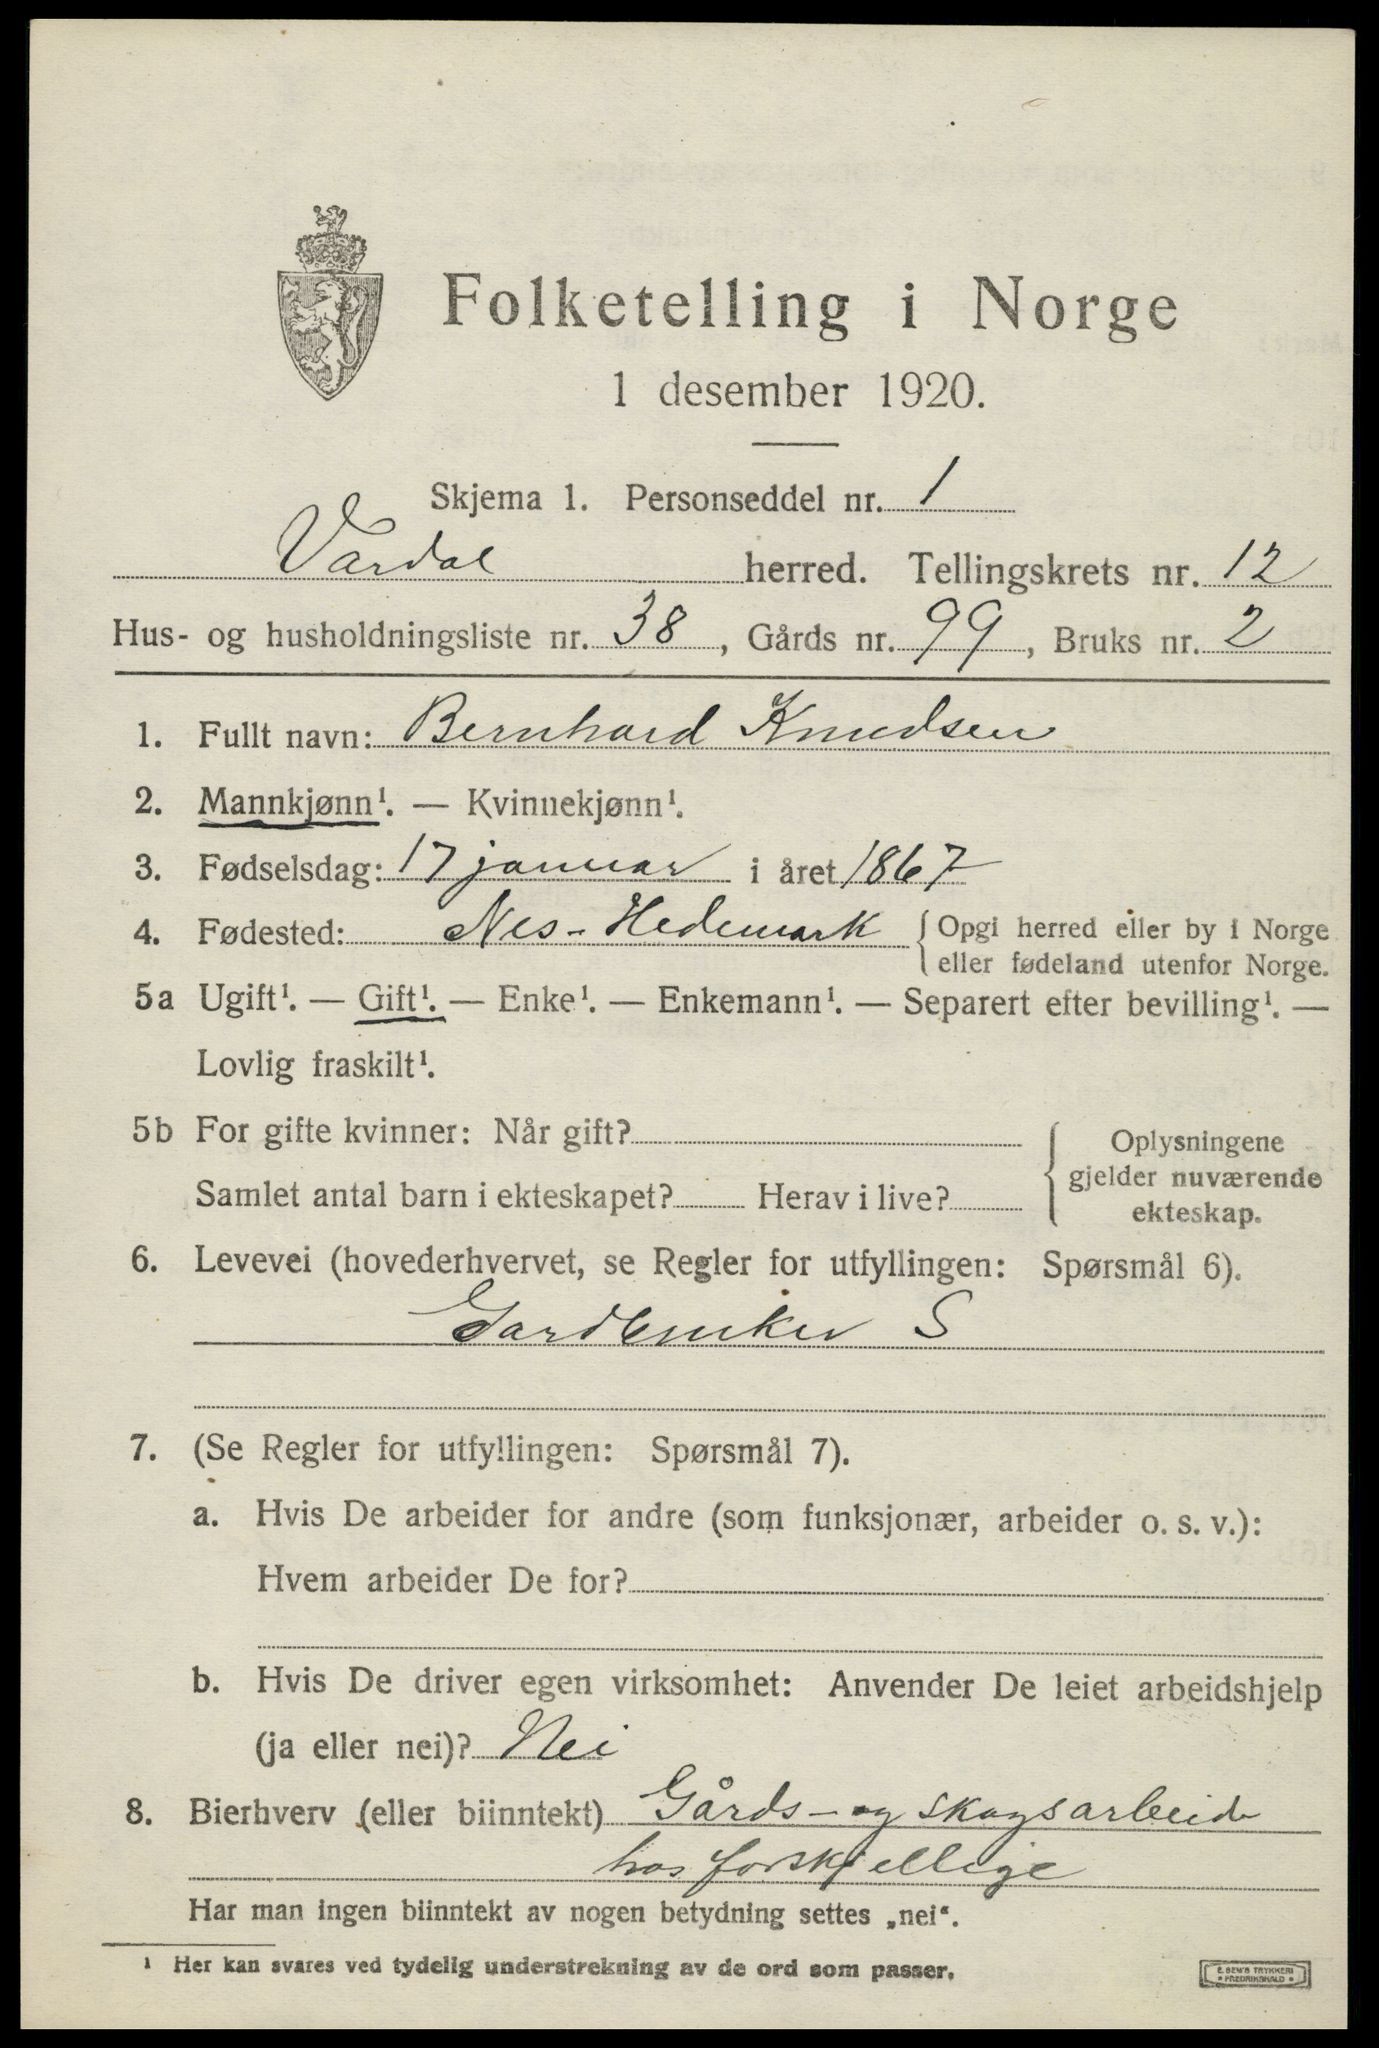 Folketelling i Norge
1 desember 1920.
Skjema 1. Personseddel nr. 1
Vardal herred. Tellingskrets nr. 12
Hus- og husholdningsliste nr. 38, Gårds nr. 99, Bruks nr. 2
1. Fullt navn: Bernhard Knudsen
2. Mannkjønn¹. — Kvinnekjønn¹.
3. Fødselsdag: 17 januar i året 1867
4. Fødested: Nes - Hedemark { Opgi herred eller by i Norge
eller fødeland utenfor Norge.
5a Ugift¹. — Gift¹. — Enke¹. — Enkemann¹. — Separert efter bevilling¹. —
Lovlig fraskilt¹.
5b For gifte kvinner: Når gift?
Samlet antal barn i ekteskapet? Herav i live?
Oplysningene
gjelder nuværende
ekteskap.
6. Levevei (hovederhvervet, se Regler for utfyllingen: Spørsmål 6).
Gardbruker S
7. (Se Regler for utfyllingen: Spørsmål 7).
a. Hvis De arbeider for andre (som funksjonær, arbeider o. s. v.):
Hvem arbeider De for?
b. Hvis De driver egen virksomhet: Anvender De leiet arbeidshjelp
(ja eller nei)? Nei
8. Bierhverv (eller biinntekt) Gårds- og skogsarbeide
hos forskjellige
Har man ingen biinntekt av nogen betydning settes „nei“.
¹ Her kan svares ved tydelig understrekning av de ord som passer.
E. SEM'S TRYKKERI
• FREDRIKSHALD •